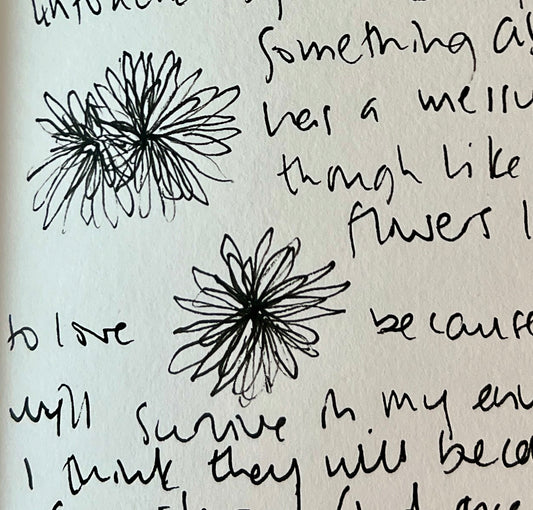 something as
has a messu
though like
flowers l
to love because
will survive in my env
I think they will beca